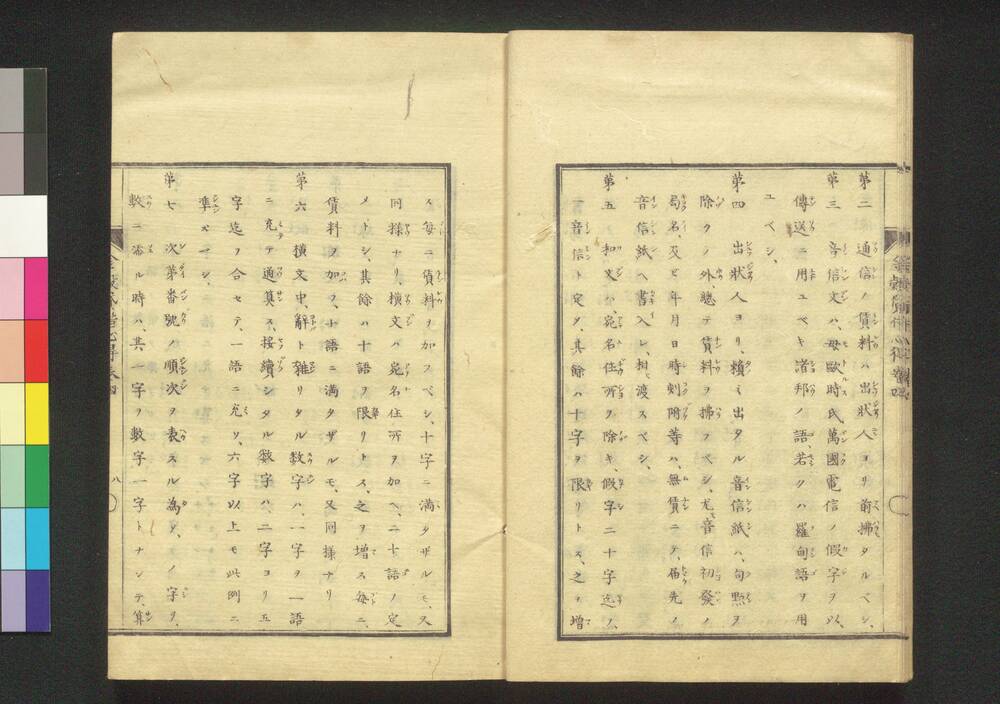 第二 通信ノ賃料ハ出狀人ヨリ前拂タルベシ、
第三 音信文ハ、母歐時氏萬國電信ノ假字ヲ以、
傳送ニ用ユベキ諸邦ノ語、若クハ羅甸語ヲ用
ユベシ、
第四 出狀人ヨリ賴ミ出タル音信紙ハ、句點ヲ
除クノ外、總テ賃料ヲ拂フベシ、尤音信初發ノ
局名、及ビ年月日時刻附等ハ、無賃ニテ、届先ノ
音信紙ヘ書入レ、相渡スベシ、
第五 和文ハ、宛名住所ヲ除キ、假字二十字迄ノ、
一音信ト定メ、其餘ハ十字ヲ限リトス、之ヲ增
ス每ニ賃料ヲ加スベシ、十字ニ滿タザルモ、又
同樣ナリ、橫文ハ宛名住所ヲ加ヘ、二十語ノ定
メトシ、其餘ハ十語ヲ限リトス、之ヲ增ス每ニ、
賃料ヲ加フ、十語ニ滿タザルモ、又同樣ナリ
第六 橫文中、辭ト雜リタル數字ハ、一字ヲ一語
ニ充テ通算ス、接續シタル數字ハ、二字ヨリ五
字迄ヲ合セテ、一語ニ充ツ、六字以上モ此例ニ
準ズベシ、
第七 次第番號ノ順次ヲ表スル為メ、ノ字ヲ、
數ニ添ル時ハ、其一字ヲ數字一字トナシテ、算
八